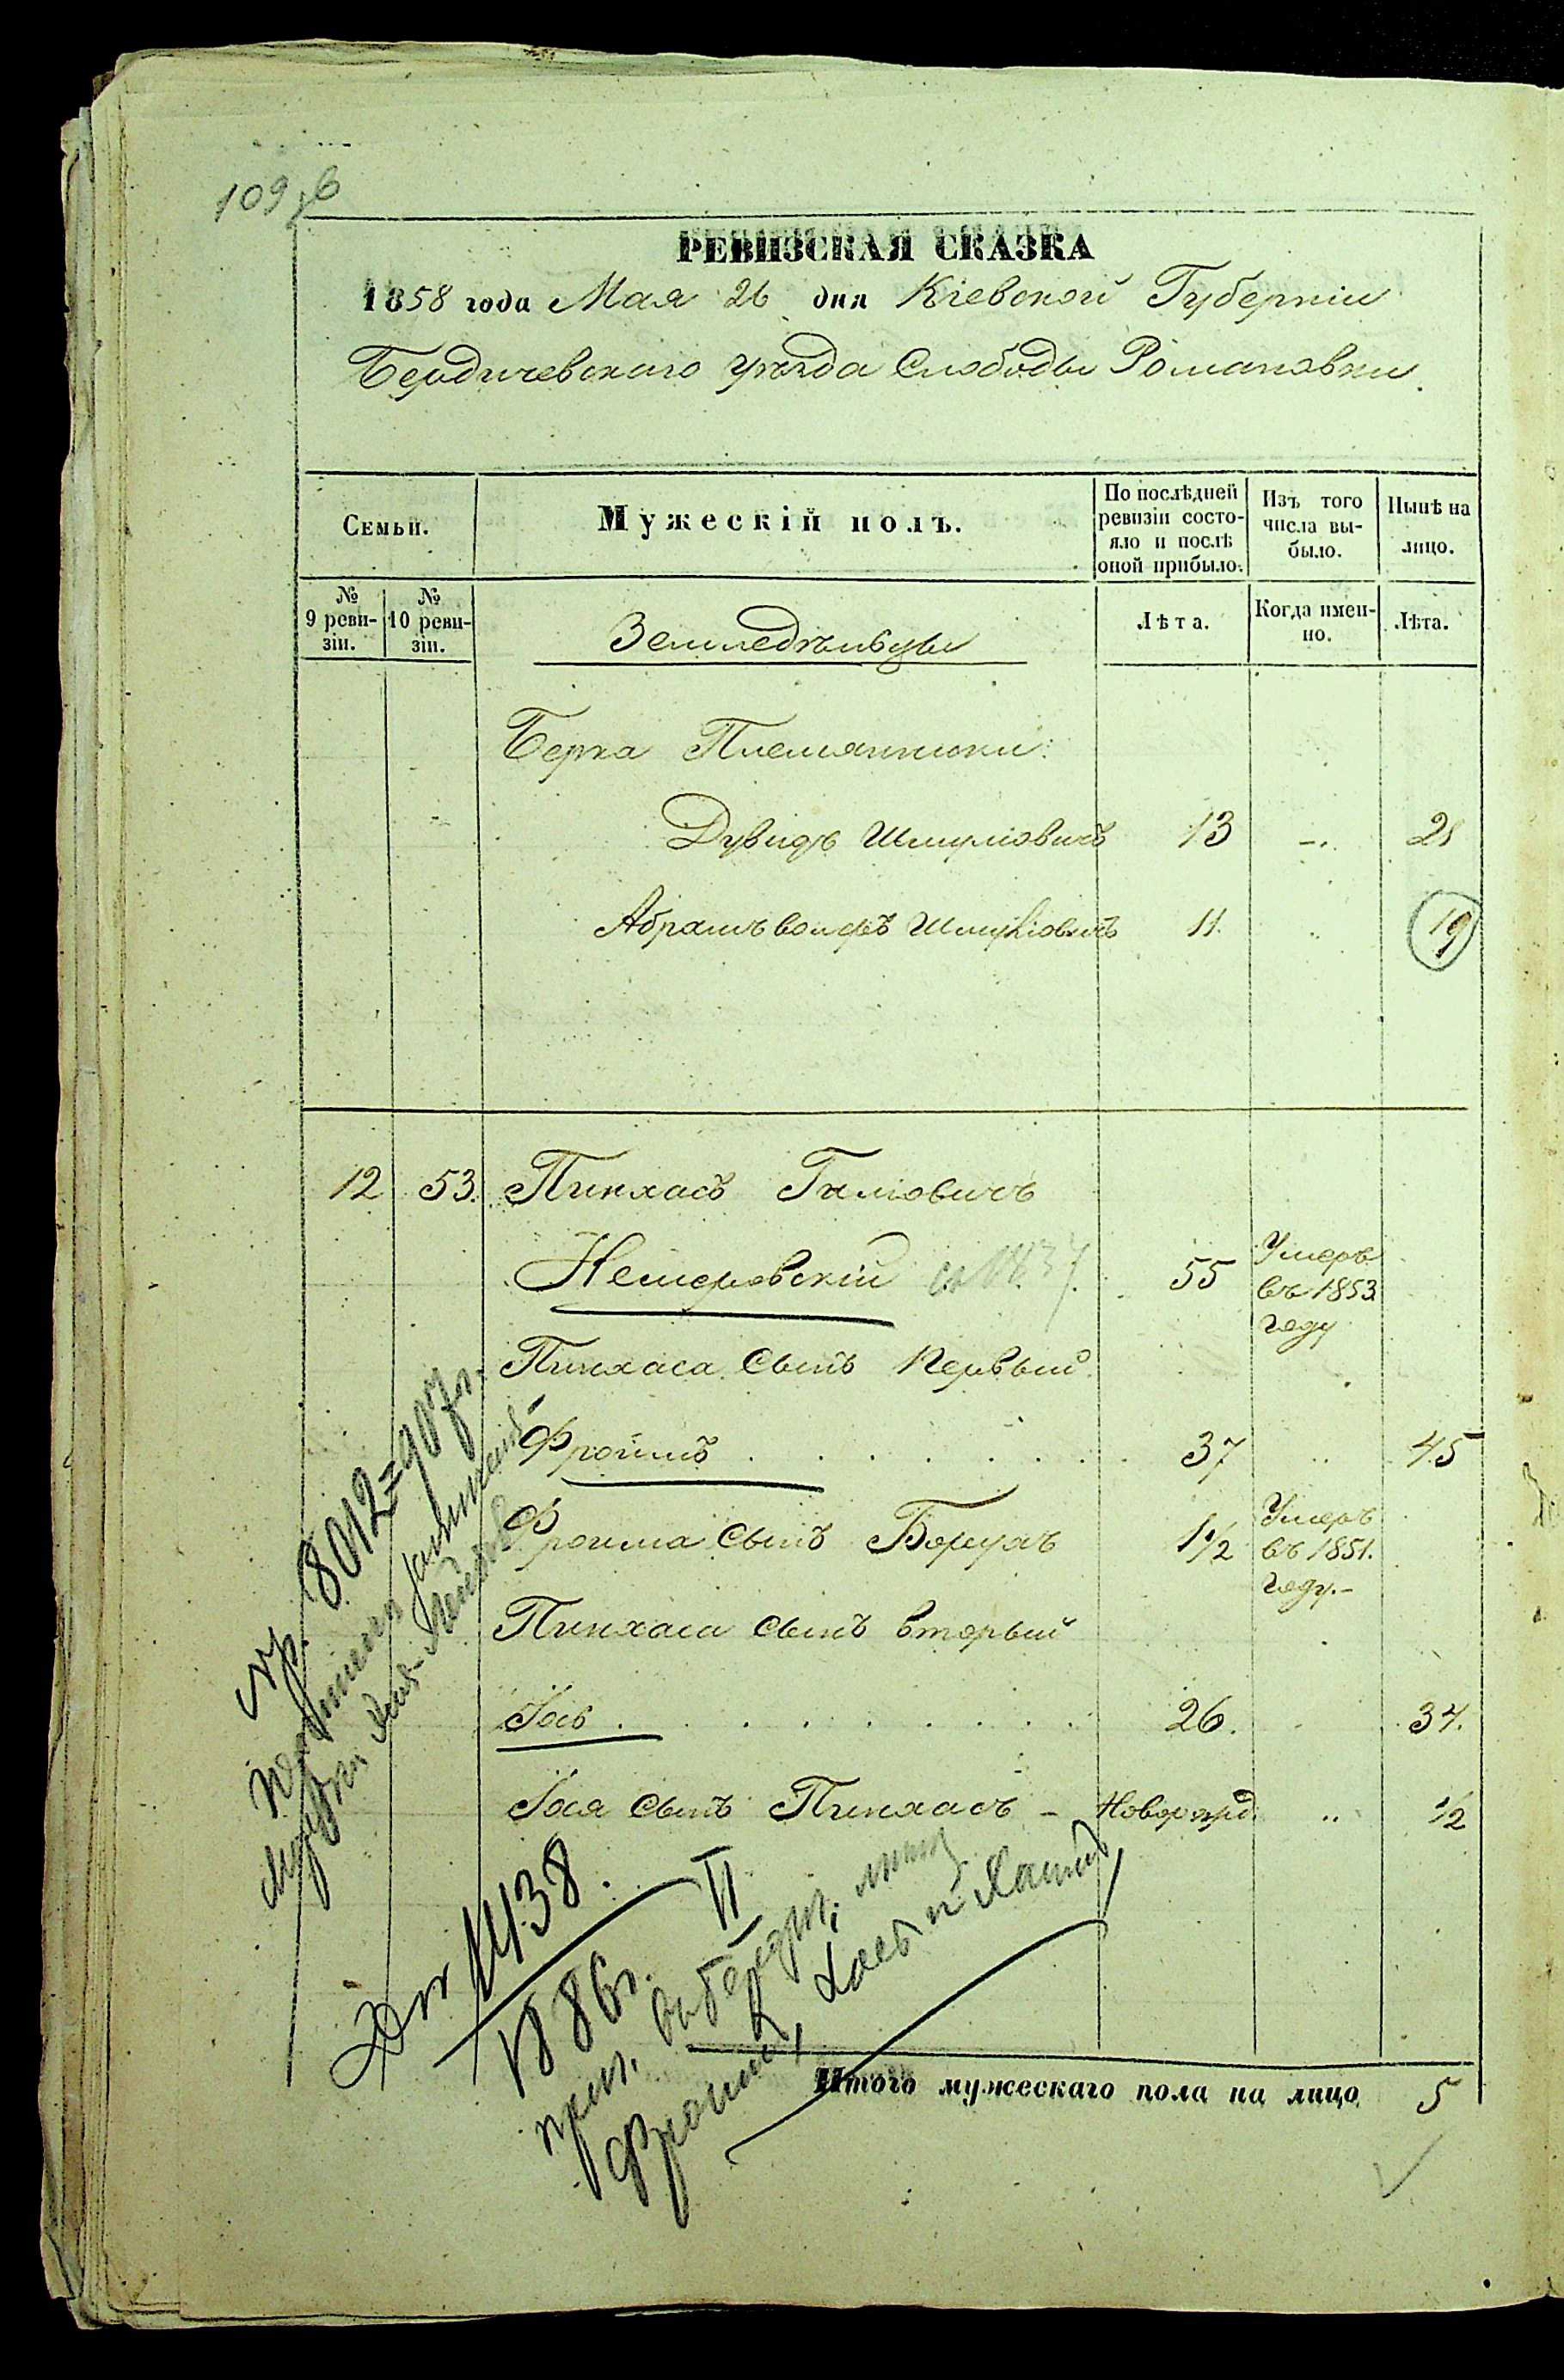 109 об
РЕВИЗСКАЯ СКАЗКА
1858 года Мая 26 дня Кіевской Губерніи
Бердичевскаго уѣзда Слободы Романовки.
Семьи.
Мужескій полъ.
По послѣдней ревизіи состояло и послѣ оной прибыло.
Изъ того числа выбыло.
Нынѣ на лицо.
№ 9 ревизіи.
№ 10 ревизіи.
Земледѣльцы
Лѣта.
Когда именно.
Лѣта.
Берка Племянники:
Дувидъ Шмуліовичъ 13 21
Абрамъ Волфъ Шмуліовичъ 11. 19
12 53. Пинхасъ
Немеровскій 55 Умеръ въ 1853 году
Пинхаса сынъ Первый
Фроимъ 37 45
Фроима сынъ Борухъ 1 1/2 Умеръ въ 1851. году.-
Пинхаса сынъ вторый
Іось 26. 34.
Іося сынъ Пинхасъ - Новорожд. 1/2
8012=907г.
1438.
1886г.
II
Фроимъ, Іось и
Итого мужескаго пола на лицо 5